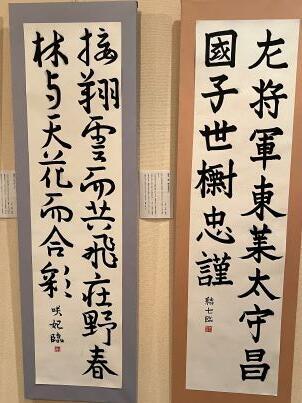 左将軍東莱太守昌
國子世樹忠謹
臨
接翔雲而共飛在野春
林与天花而合彩
咲妃臨